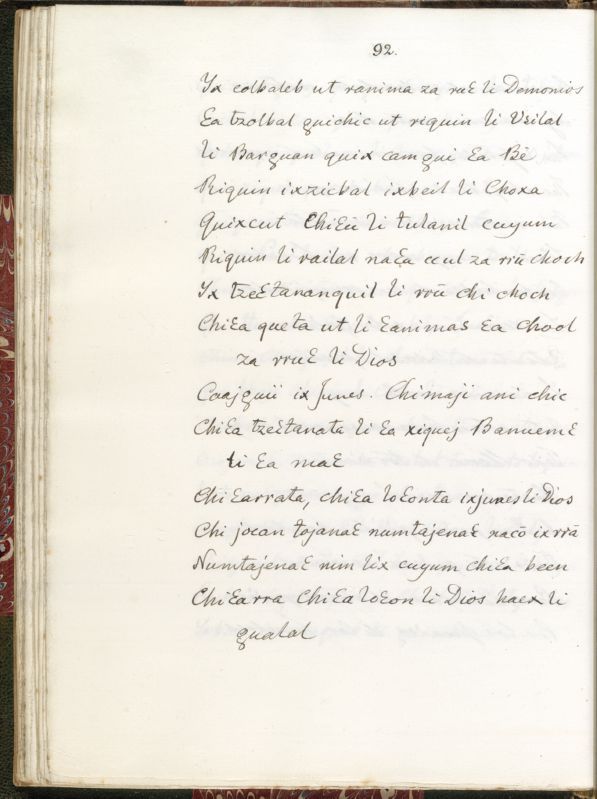 92.
Yx colbaleb ut ranima za ruƐ li Demonios
Ɛa tzolbal guichic ut riquin li Usilal
li Barguan quix camgui Ɛa Bē
Riquin ixzicbal ixbeil li Choxa
Quixcut ChiƐū li tulanil cuyum
Riquin li railal naƐa ccul za rrū choch
Yx tzeƐtananquil li rrū chi choch
ChiƐa queta ut li Ɛanimas Ɛa chool
za rruƐ li Dios
Caajguii ix Junes. Chimaji ani chic
ChiƐa tzeƐtanata li Ɛa xiquej BanuemƐ
li Ɛa maƐ
ChiƐarrata, chiƐa loƐonta ixjunes li Dios
Chi jocan tojanaƐ numtajenaƐ nacō ix rrā
NumtajenaƐ nim lix cuyum chiƐa been
ChiƐarra ChiƐa loƐon li Dios haex li
gualal